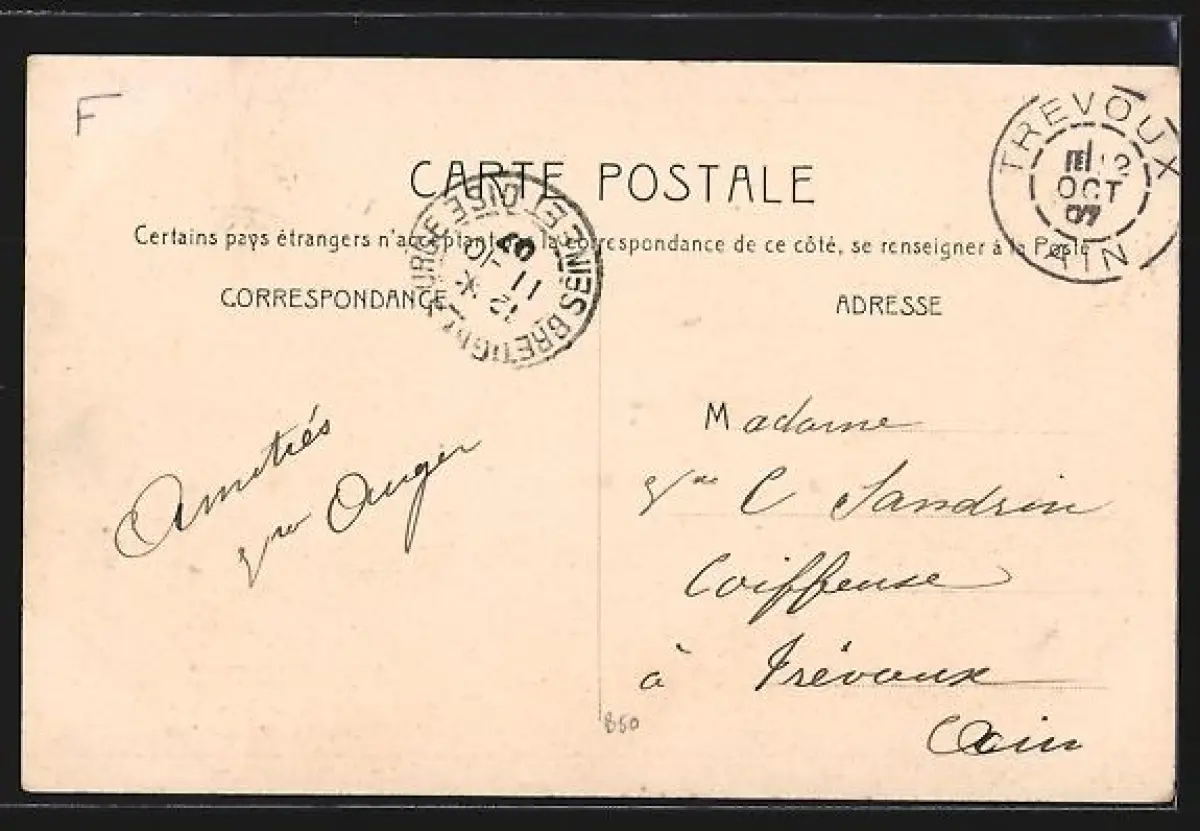 F
CARTE POSTALE
Certains pays étrangers n'acceptant pas la correspondance de ce côté, se renseigner à la Poste
CORRESPONDANCE
ADRESSE
TREVOUX
12
OCT
07
AIN
BRETIGNY
SEINE ET OISE
11
Amitiés
Vve Auger
Madame
Vve C Sandrin
Coiffeuse
à Trévoux
Ain
B50